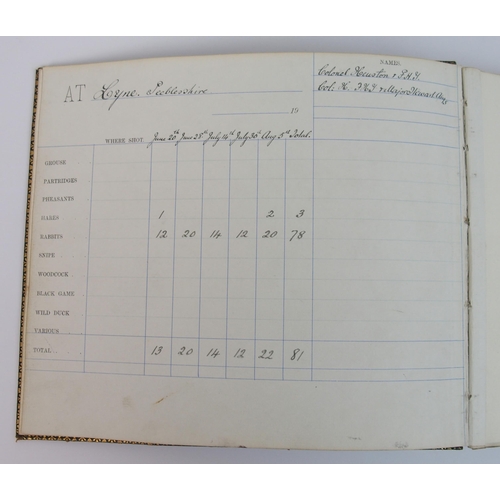 NAMES.
Colonel Houston & P.H.J.
Col: H. &
AT Lyne. Peeblesshire
19
WHERE SHOT June 20th June 28th July 14th July 30th Aug 5th Total.
GROUSE
PARTRIDGES
PHEASANTS
HARES 1 2 3
RABBITS 12 20 14 12 20 78
SNIPE
WOODCOCK
BLACK GAME
WILD DUCK
VARIOUS
TOTAL 13 20 14 12 22 81